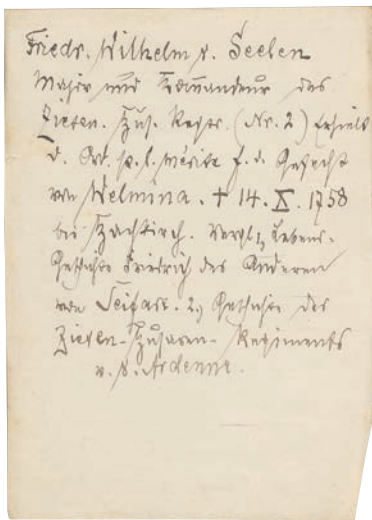 Friedr. Wilhelm v. Seelen
Major und Kommandeur des
Zieten. Hus. Regts. (Nr. 2) Erhielt
d. Ord. p. l. mérite f. d. Gefecht
von Welmina. † 14. X. 1758
bei Hochkirch. Vergl. 1, Lebens-
Geschichte Friedrich des Anderen
von Seifart. 2, Geschichte des
Zieten-Husaren-Regiments
v. d. Ardenne.